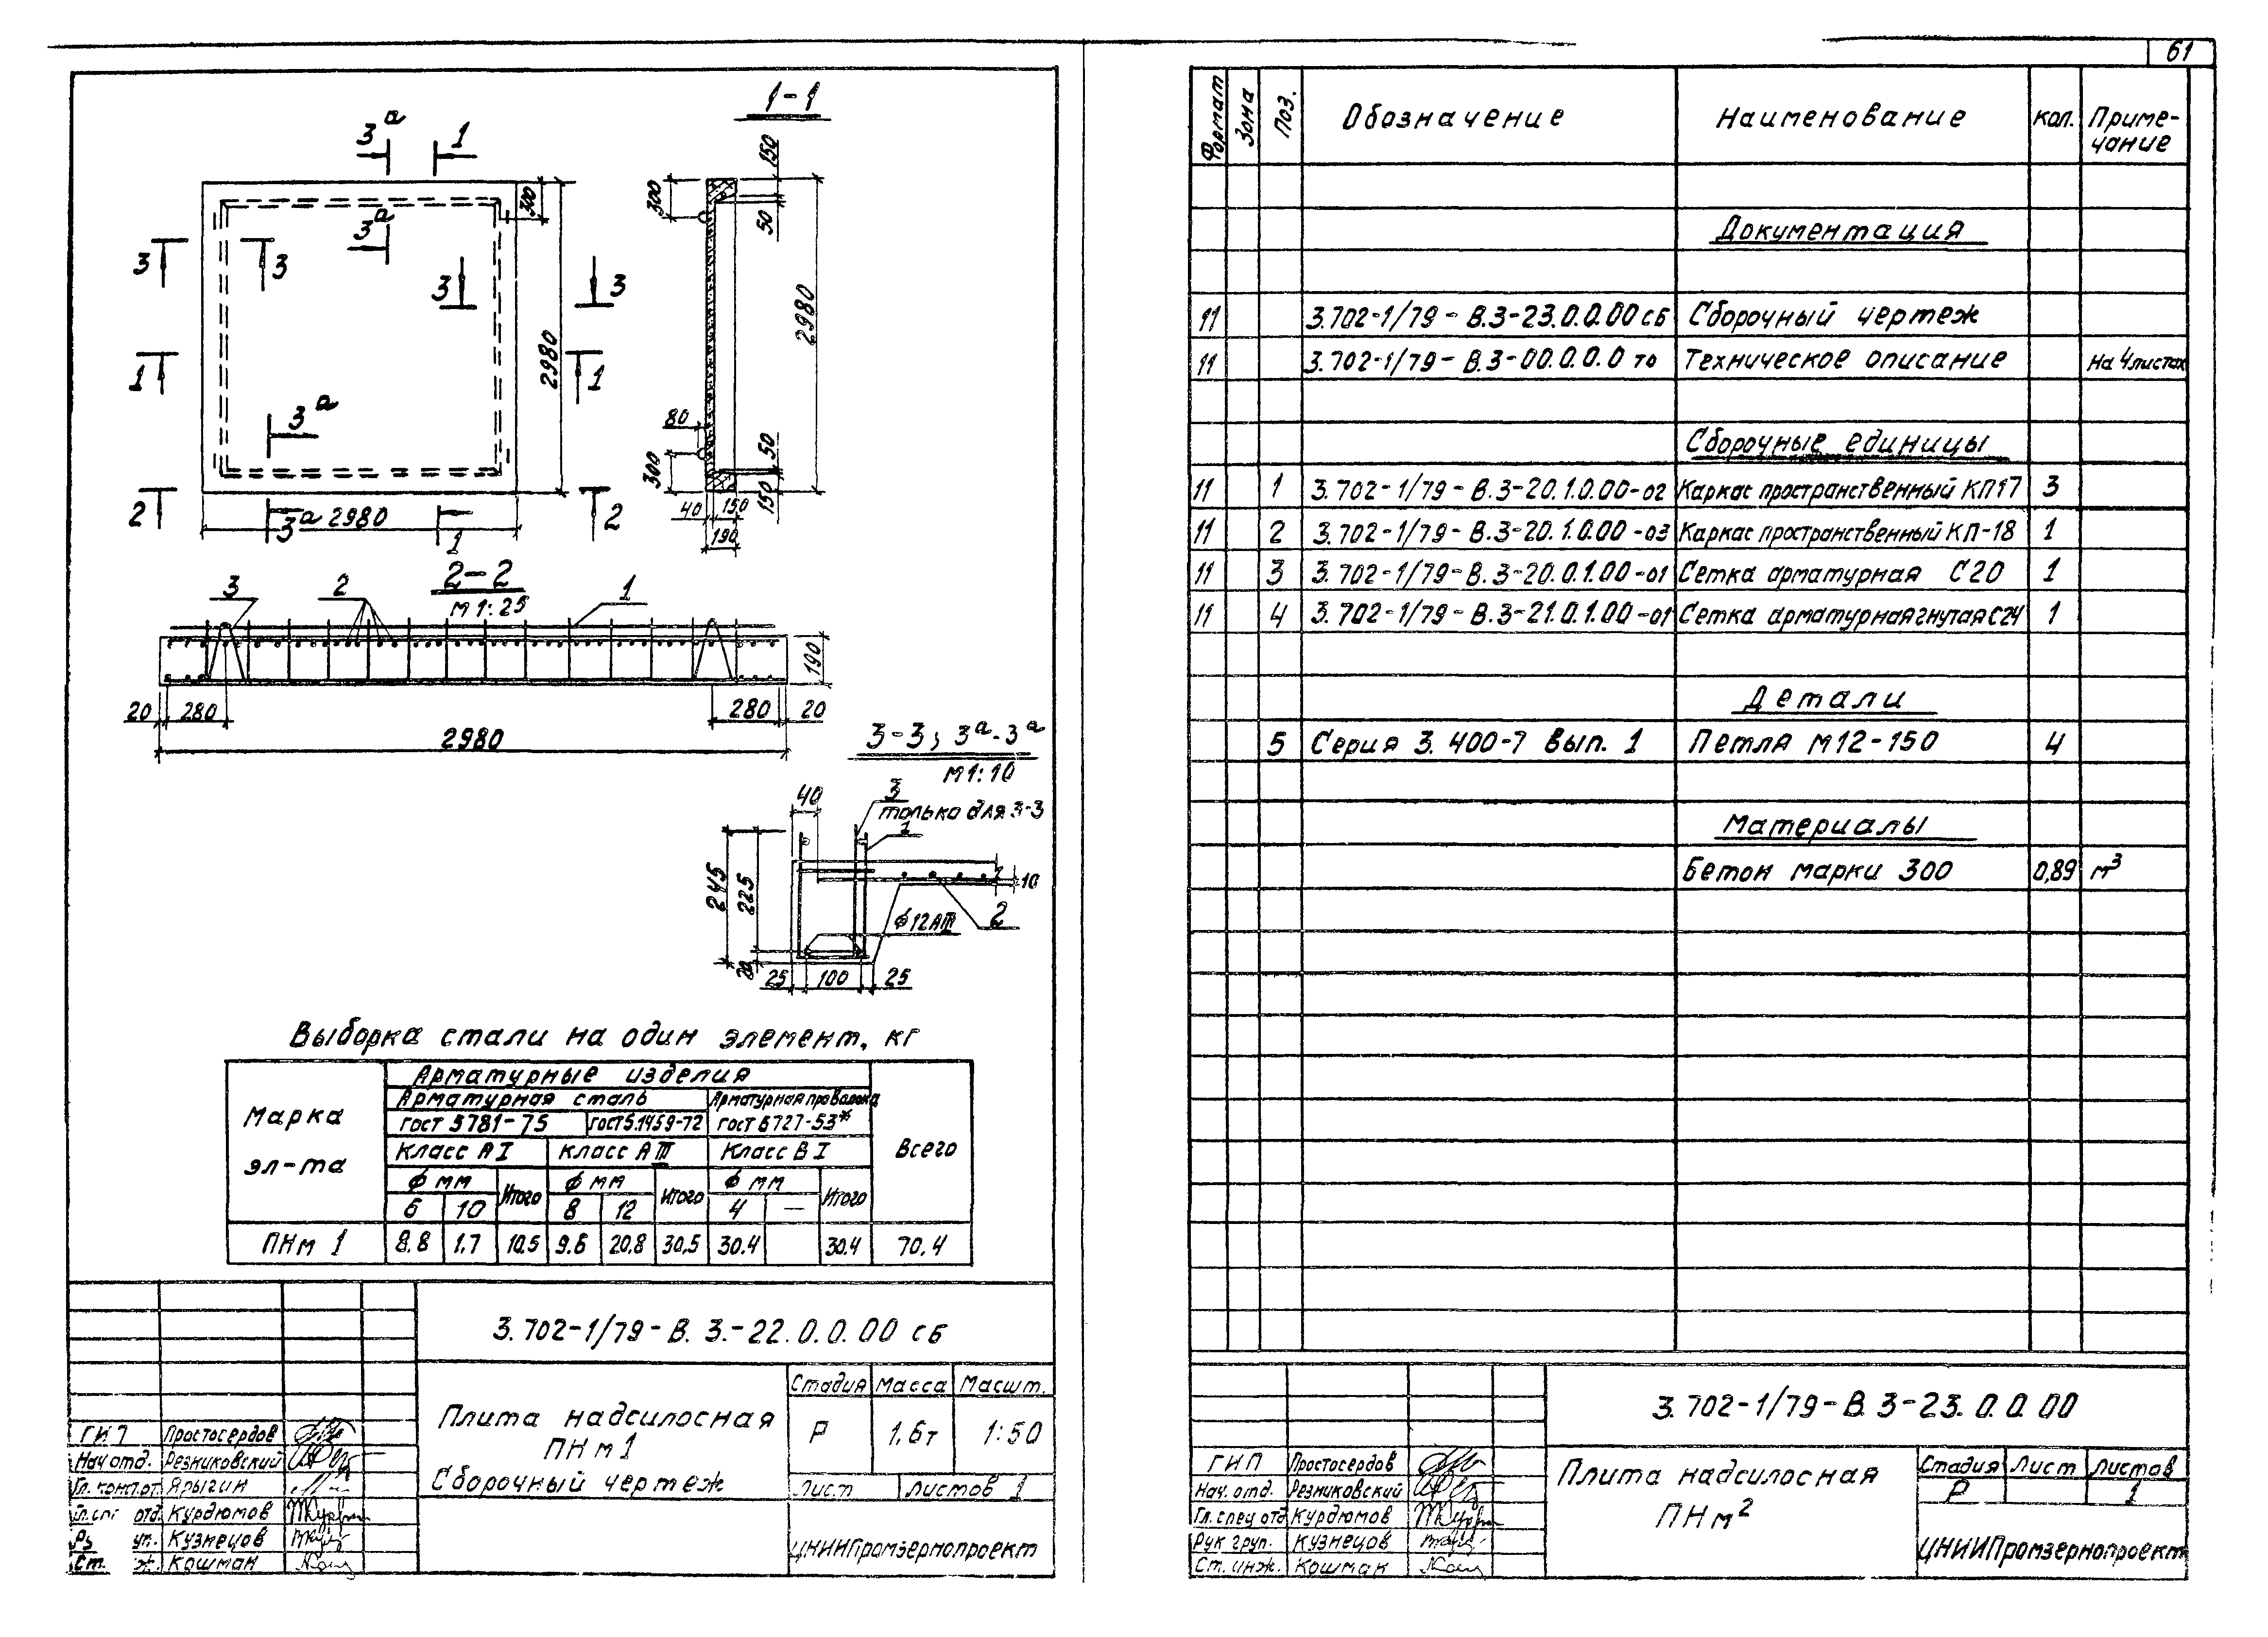 61
1-1
3а 1
3а
3 3 3 3
1 1
3а
2 3а 1 2
300
2980
2980
150
300
50
2980
80
50
300
150
40 150
190
2-2
М 1:25
3 2 1
190
20 280 280 20
2980
3-3; 3а-3а
М 1:10
40
3
только для 3-3
1
245
225
10
ф12АIII
2
20
25 100 25
Выборка стали на один элемент, кг
Марка эл-та
Арматурные изделия
Всего
Арматурная сталь Арматурная проволока
ГОСТ 5781-75 ГОСТ 5.1459-72 ГОСТ 6727-53*
Класс АI Класс АIII Класс ВI
ф мм Итого ф мм Итого ф мм Итого
6 10 8 12 4 —
ПНм 1 8.8 1.7 10.5 9.6 20.8 30.5 30.4 30.4 70.4
3.702-1/79-В.3.-22.0.0.00 сб
Плита надсилосная
ПНм1
Сборочный чертеж
Стадия Масса Масшт.
Р 1.6т 1:50
Лист Листов 1
ЦНИИПромзернопроект
ГИП Простосердов
Нач отд. Резниковский
Гл. конст.от. Ярыгин
Гл.спг отд. Курдюмов
Ру уп. Кузнецов
Ст. ж. Кошман
Формат Зона Поз. Обозначение Наименование Кол. Приме-
чание
Документация
11 3.702-1/79-В.3-23.0.0.00 сб Сборочный чертеж
11 3.702-1/79-В.3-00.0.0.0 то Техническое описание На 4 листах
Сборочные единицы
11 1 3.702-1/79-В.3-20.1.0.00-02 Каркас пространственный КП17 3
11 2 3.702-1/79-В.3-20.1.0.00-03 Каркас пространственный КП-18 1
11 3 3.702-1/79-В.3-20.0.1.00-01 Сетка арматурная С20 1
11 4 3.702-1/79-В.3-21.0.1.00-01 Сетка арматурная гнутая С24 1
Детали
5 Серия 3.400-7 вып. 1 Петля М12-150 4
Материалы
Бетон марки 300 0,89 м3
3.702-1/79-В.3-23.0.0.00
Плита надсилосная
ПНм2
Стадия Лист Листов
Р 1
ЦНИИПромзернопроект
ГИП Простосердов
Нач. отд. Резниковский
Гл.спец отд Курдюмов
Рук груп. Кузнецов
Ст. инж. Кошман